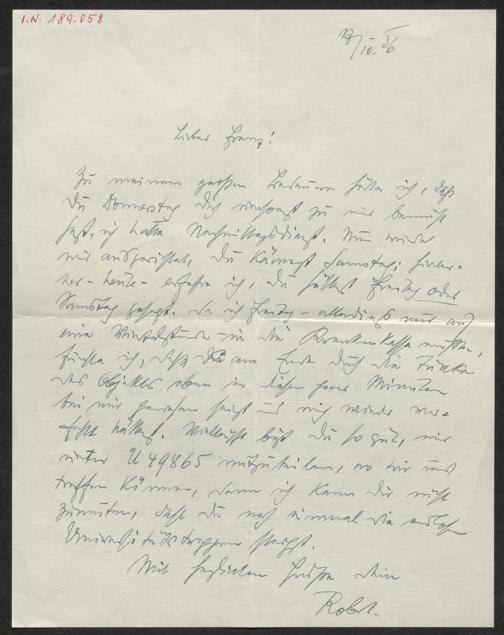 I.N. 189.058
19/IV. 36
Lieber Franz!
Zu meinem großen Bedauern hörte ich, daß
Du Donnerstag Dich umsonst zu mir bemüht
hast, ich hatte Nachmittagsdienst. Nun wurde
mir ausgerichtet, Du kämest Samstag; hinter-
her - heute - erfahre ich, Du hättest Freitag oder
Samstag gesagt. Da ich Freitag - allerdings nur auf
eine Viertelstunde - in die Krankenkasse mußte,
fürchte ich, daß Du am Ende durch die Tücke
des Objektes eben in diesen paar Minuten
bei mir gewesen seist und mich wieder ver-
fehlt hättest. Vielleicht bist Du so gut, mir
unter U 49865 mitzuteilen, wo wir uns
treffen können, denn ich kann Dir nicht
zumuten, daß Du noch einmal die
Universitätstreppen steigst.
Mit herzlichen Grüßen Dein
Robert.